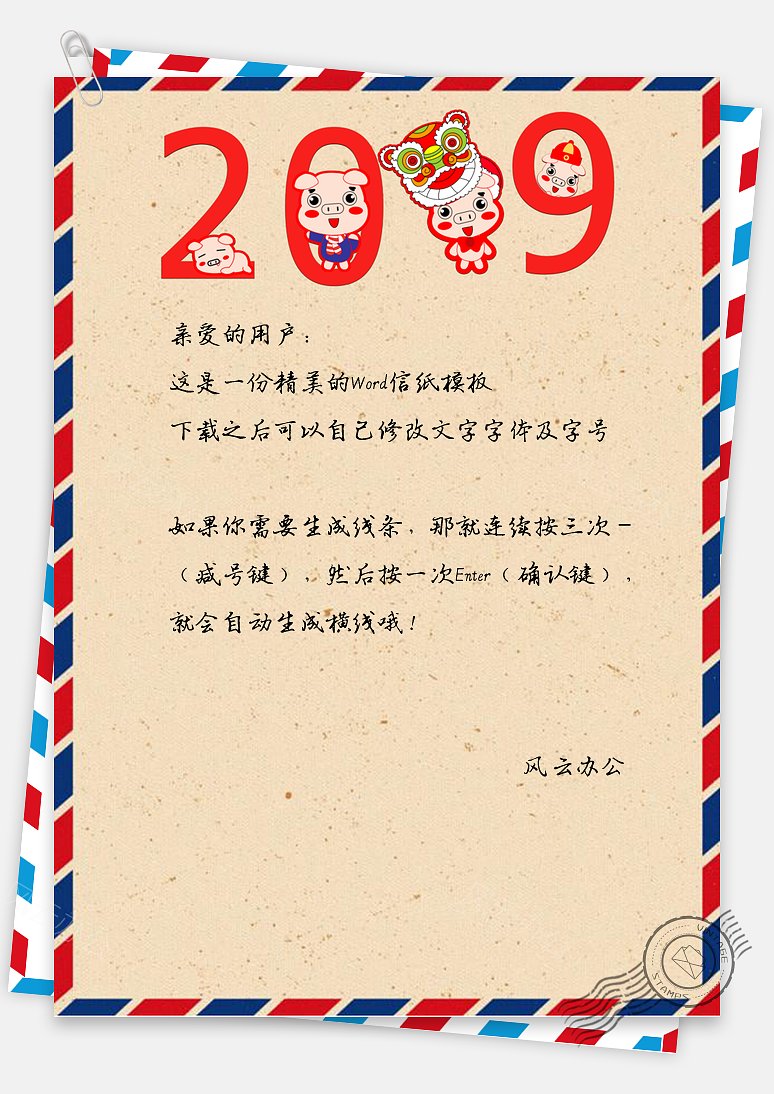 2019
亲爱的用户：
这是一份精美的Word信纸模板
下载之后可以自己修改文字字体及字号
如果你需要生成线条，那就连续按三次－
（减号键），然后按一次Enter（确认键），
就会自动生成横线哦！
风云办公
VINTAGE
STAMPS